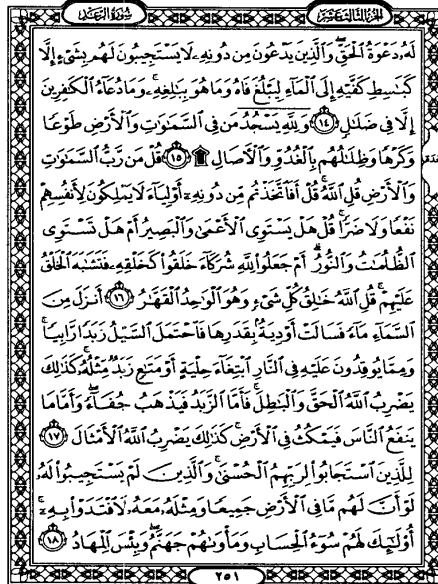 سورة الرعد
الجزء الثالث عشر
لَهُۥ دَعْوَةُ ٱلْحَقِّ ۖ وَٱلَّذِينَ يَدْعُونَ مِن دُونِهِۦ لَا يَسْتَجِيبُونَ لَهُم بِشَىْءٍ إِلَّا
كَبَـٰسِطِ كَفَّيْهِ إِلَى ٱلْمَآءِ لِيَبْلُغَ فَاهُ وَمَا هُوَ بِبَـٰلِغِهِۦ ۚ وَمَا دُعَآءُ ٱلْكَـٰفِرِينَ
إِلَّا فِى ضَلَـٰلٍ ١٤ وَلِلَّهِ يَسْجُدُ مَن فِى ٱلسَّمَـٰوَٰتِ وَٱلْأَرْضِ طَوْعًا
وَكَرْهًا وَظِلَـٰلُهُم بِٱلْغُدُوِّ وَٱلْـَٔاصَالِ ۩ ١٥ قُلْ مَن رَّبُّ ٱلسَّمَـٰوَٰتِ
وَٱلْأَرْضِ قُلِ ٱللَّهُ ۚ قُلْ أَفَٱتَّخَذْتُم مِّن دُونِهِۦٓ أَوْلِيَآءَ لَا يَمْلِكُونَ لِأَنفُسِهِمْ
نَفْعًا وَلَا ضَرًّا ۚ قُلْ هَلْ يَسْتَوِى ٱلْأَعْمَىٰ وَٱلْبَصِيرُ أَمْ هَلْ تَسْتَوِى
ٱلظُّلُمَـٰتُ وَٱلنُّورُ ۗ أَمْ جَعَلُوا۟ لِلَّهِ شُرَكَآءَ خَلَقُوا۟ كَخَلْقِهِۦ فَتَشَـٰبَهَ ٱلْخَلْقُ
عَلَيْهِمْ ۚ قُلِ ٱللَّهُ خَـٰلِقُ كُلِّ شَىْءٍ وَهُوَ ٱلْوَٰحِدُ ٱلْقَهَّـٰرُ ١٦ أَنزَلَ مِنَ
ٱلسَّمَآءِ مَآءً فَسَالَتْ أَوْدِيَةٌۢ بِقَدَرِهَا فَٱحْتَمَلَ ٱلسَّيْلُ زَبَدًا رَّابِيًا ۚ
وَمِمَّا يُوقِدُونَ عَلَيْهِ فِى ٱلنَّارِ ٱبْتِغَآءَ حِلْيَةٍ أَوْ مَتَـٰعٍ زَبَدٌ مِّثْلُهُۥ ۚ كَذَٰلِكَ
يَضْرِبُ ٱللَّهُ ٱلْحَقَّ وَٱلْبَـٰطِلَ ۚ فَأَمَّا ٱلزَّبَدُ فَيَذْهَبُ جُفَآءً ۖ وَأَمَّا مَا
يَنفَعُ ٱلنَّاسَ فَيَمْكُثُ فِى ٱلْأَرْضِ ۚ كَذَٰلِكَ يَضْرِبُ ٱللَّهُ ٱلْأَمْثَالَ ١٧
لِلَّذِينَ ٱسْتَجَابُوا۟ لِرَبِّهِمُ ٱلْحُسْنَىٰ ۚ وَٱلَّذِينَ لَمْ يَسْتَجِيبُوا۟ لَهُۥ
لَوْ أَنَّ لَهُم مَّا فِى ٱلْأَرْضِ جَمِيعًا وَمِثْلَهُۥ مَعَهُۥ لَٱفْتَدَوْا۟ بِهِۦٓ ۚ
أُو۟لَـٰٓئِكَ لَهُمْ سُوٓءُ ٱلْحِسَابِ وَمَأْوَىٰهُمْ جَهَنَّمُ ۖ وَبِئْسَ ٱلْمِهَادُ ١٨
٢٥١